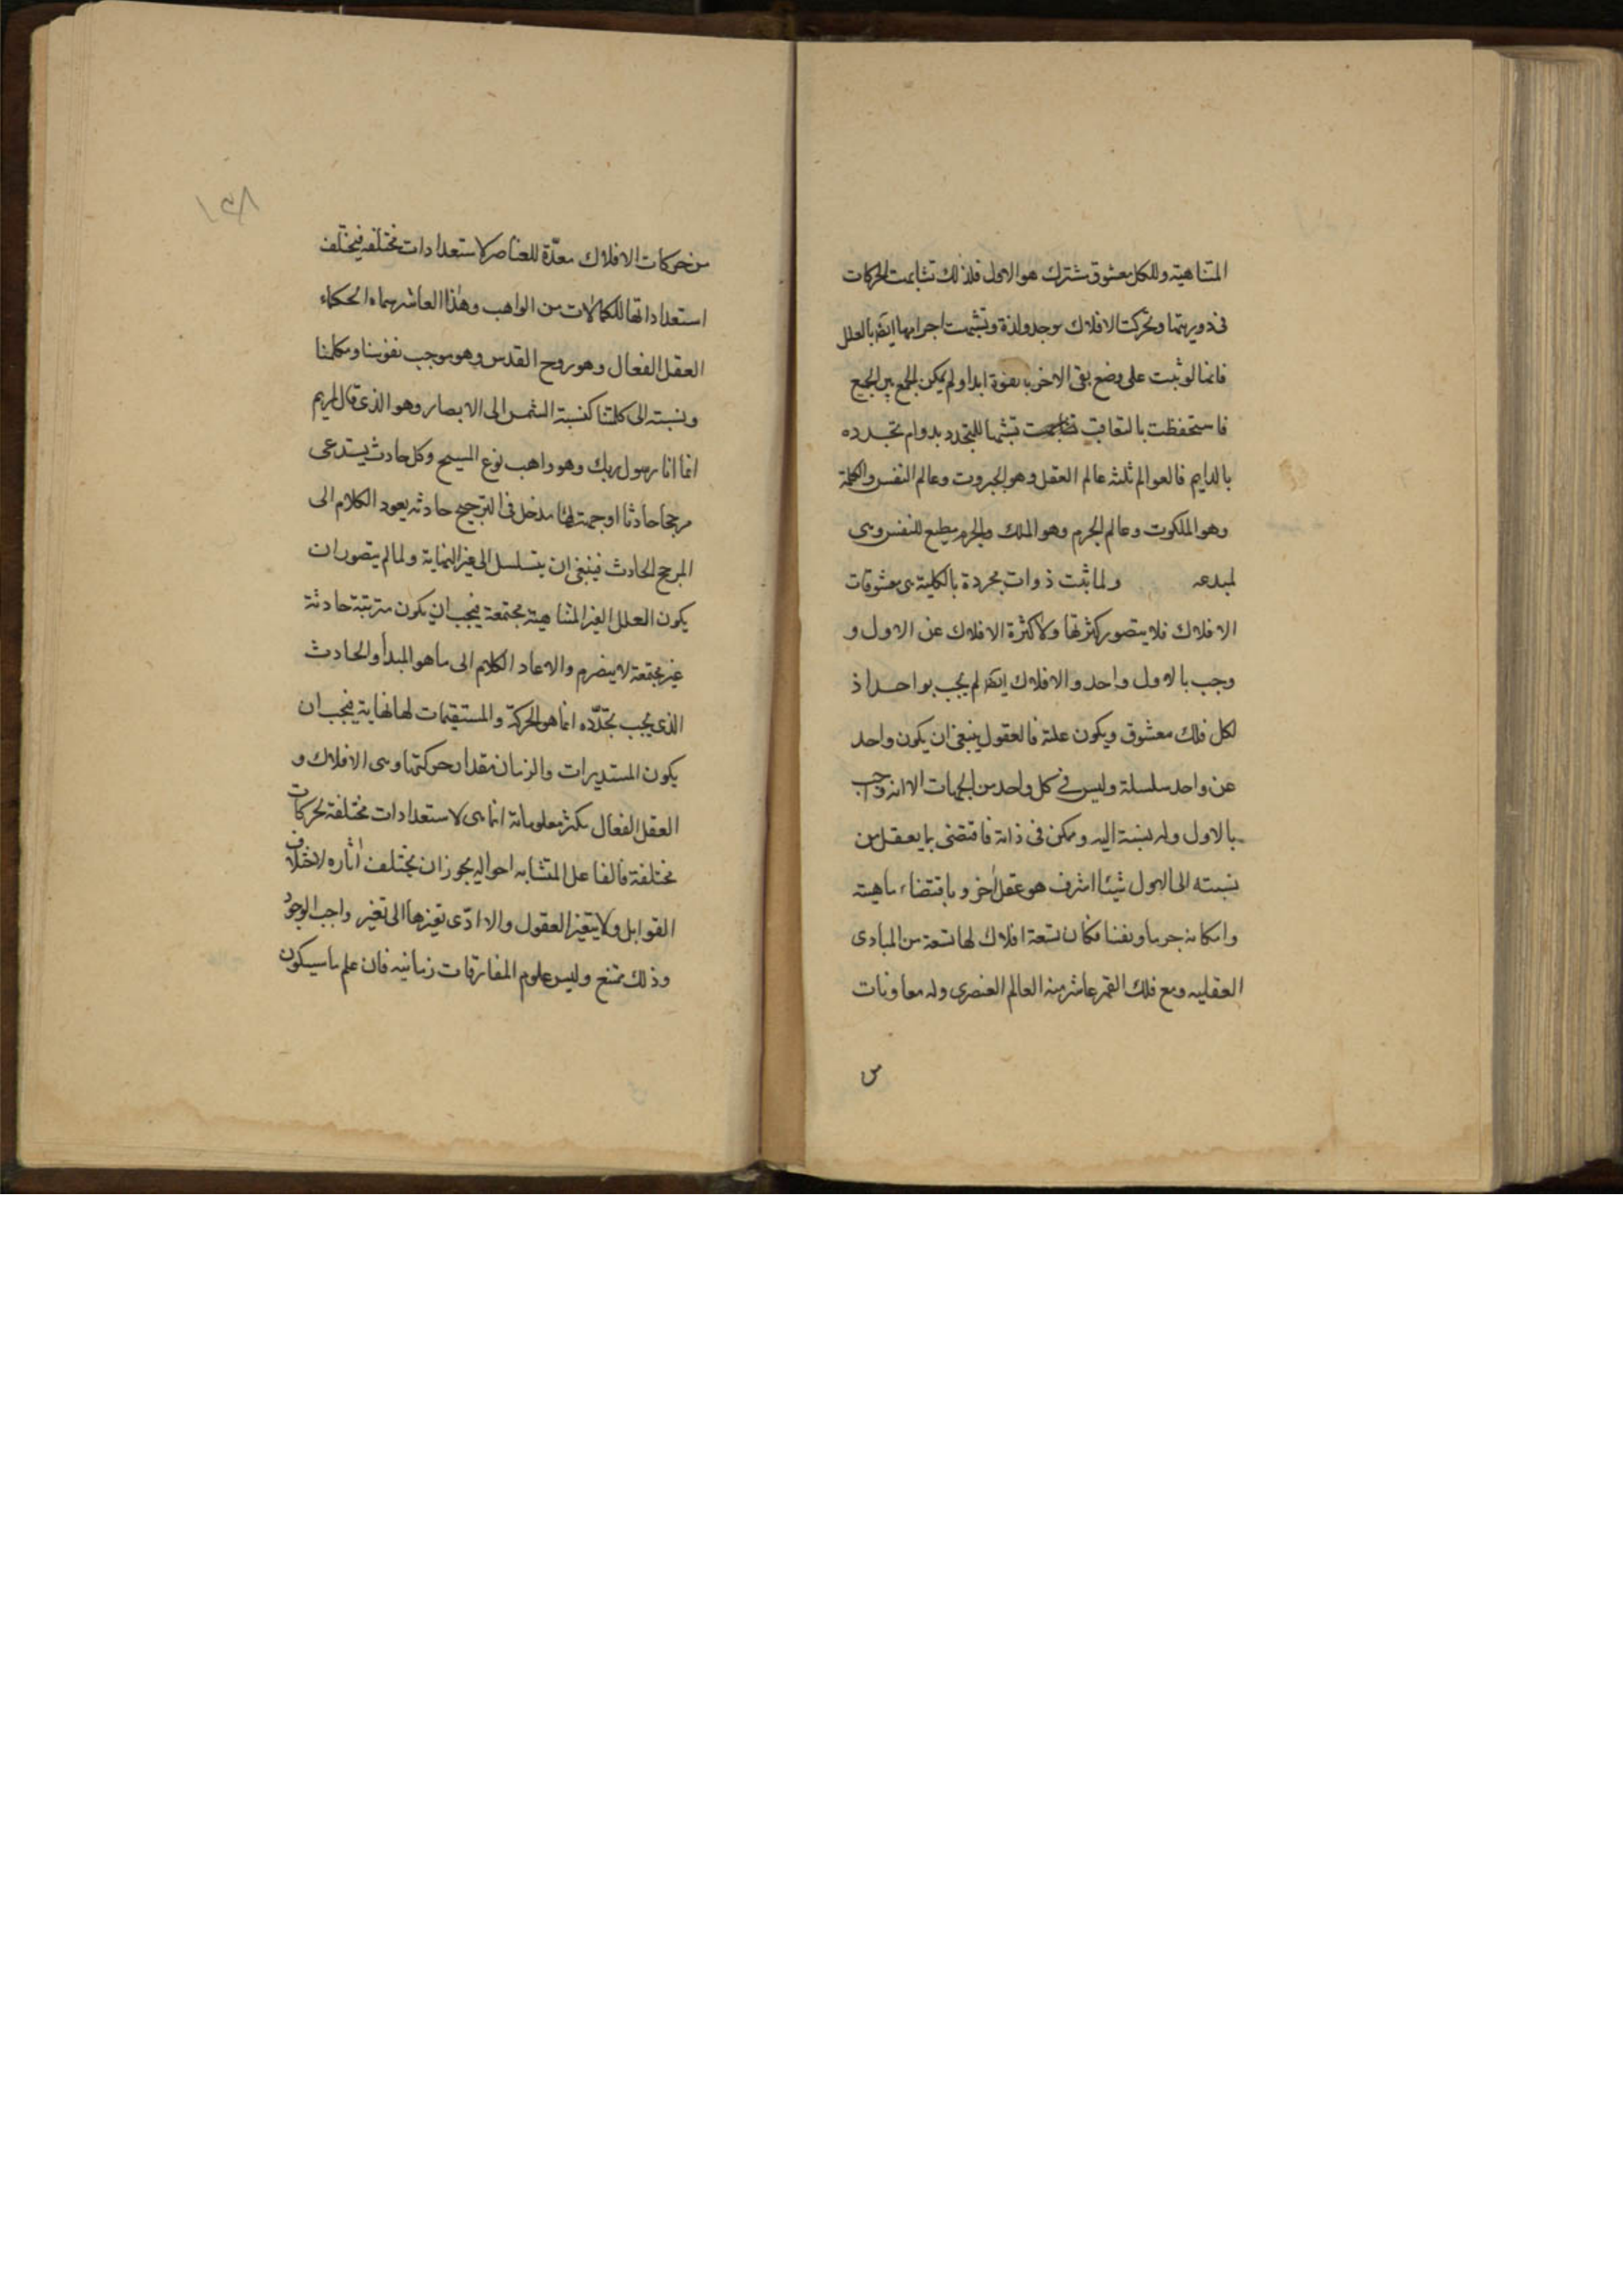 المتناهية وللكل معشوق مشترك هو الاول فلذلك تشابهت الحركات
فى دوريتها وتحركت الافلاك بوجد ولذة وتشبهت اجرامها ايضا بالعلل
فانها لو ثبت على وضع بقى الاخر بالقوة ابدا ولم يمكن الجمع بين الجميع
فاستحفظت بالتعاقب تشبها للمتجدد بدوام تجدده
بالدايم فالعوالم ثلثة عالم العقل وهو الجبروت وعالم النفس والكلمة
وهو الملكوت وعالم الجرم وهو الملك والجرم مطيع للنفس وهى
لمبدعه ولما ثبت ذوات مجردة بالكلية هى معشوقات
الافلاك فلا يتصور كثرتها ولا كثرة الافلاك عن الاول و
وجب بالاول واحد والافلاك ايضا لم يجب بواحد اذ
لكل فلك معشوق ويكون علته فالعقول ينبغى ان يكون واحد
عن واحد سلسلة وليس فى كل واحد من الجهات الا انه وجب
بالاول وله نسبة اليه وممكن فى ذاته فاقتضى بما يعقل من
نسبته الى الاول شيئا اشرف هو عقل آخر وباقتضاء ماهيته
وامكانه جرما ونفسا فكان تسعة افلاك لها تسعة من المبادى
العقليه ومع فلك القمر عاشر منه العالم العنصرى وله معاونات
من
١٥٨
من حركات الافلاك معدّة للعناصر لاستعدادات مختلفه فيختلف
استعداداتها للكمالات من الواهب وهذا العاشر سماه الحكماء
العقل الفعال وهو روح القدس وهو موجب نفوسنا ومكملنا
ونسبته الى كلمتنا كنسبة الشمس الى الابصار وهو الذى قال لمريم
انما انا رسول ربك وهو واهب نوع المسيح وكل حادث يستدعى
مرجحا حادثا او جهت لها مدخل فى الترجيح حادثه يعود الكلام الى
المرجح الحادث فينبغى ان يتسلسل الى غير النهاية ولما لم يتصور ان
يكون العلل الغير المتناهية مجتمعة فيجب ان يكون مترتبة حادثة
غير مجتمعة لا ينصرم والا عاد الكلام الى ما هو المبدأ والحادث
الذى يجب تجدّده انما هو الحركة والمستقيمات لها نهاية فيجب ان
يكون المستديرات والزمان مقدار حركتها وهى الافلاك و
العقل الفعال تكثر معلوماته انما هى لاستعدادات مختلفة لحركات
مختلفة فالفاعل المتشابه احواله يجوز ان يختلف آثاره لاختلاف
القوابل ولا يتغير العقول والا ادّى تغيرها الى تغير واجب الوجود
وذلك ممتنع وليس علوم المفارقات زمانيه فان علم ما سيكون